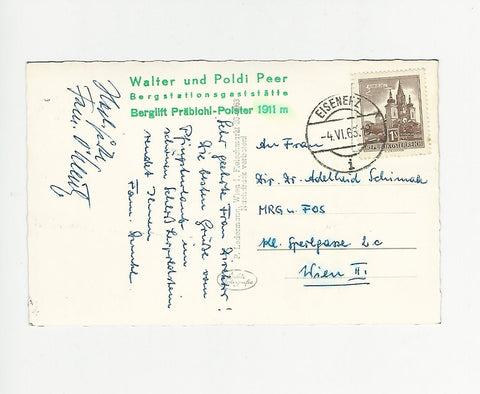 Walter und Poldi Peer
Bergstationsgaststätte
Berglift Präbichl-Polster 1911 m
EISENERZ
-4.VI.63
1
REPUBLIK ÖSTERREICH
Sehr geehrte Frau Direktor!
Die besten Grüße vom
Pfingsturlaub im
schönen Schloß Leopoldstein
sendet Ihnen
Fam.
Fam.
An Frau
Dir. Dr. Adelheid Schimak
MRG u. FOS
Kl. Sperlgasse 2c
Wien II.